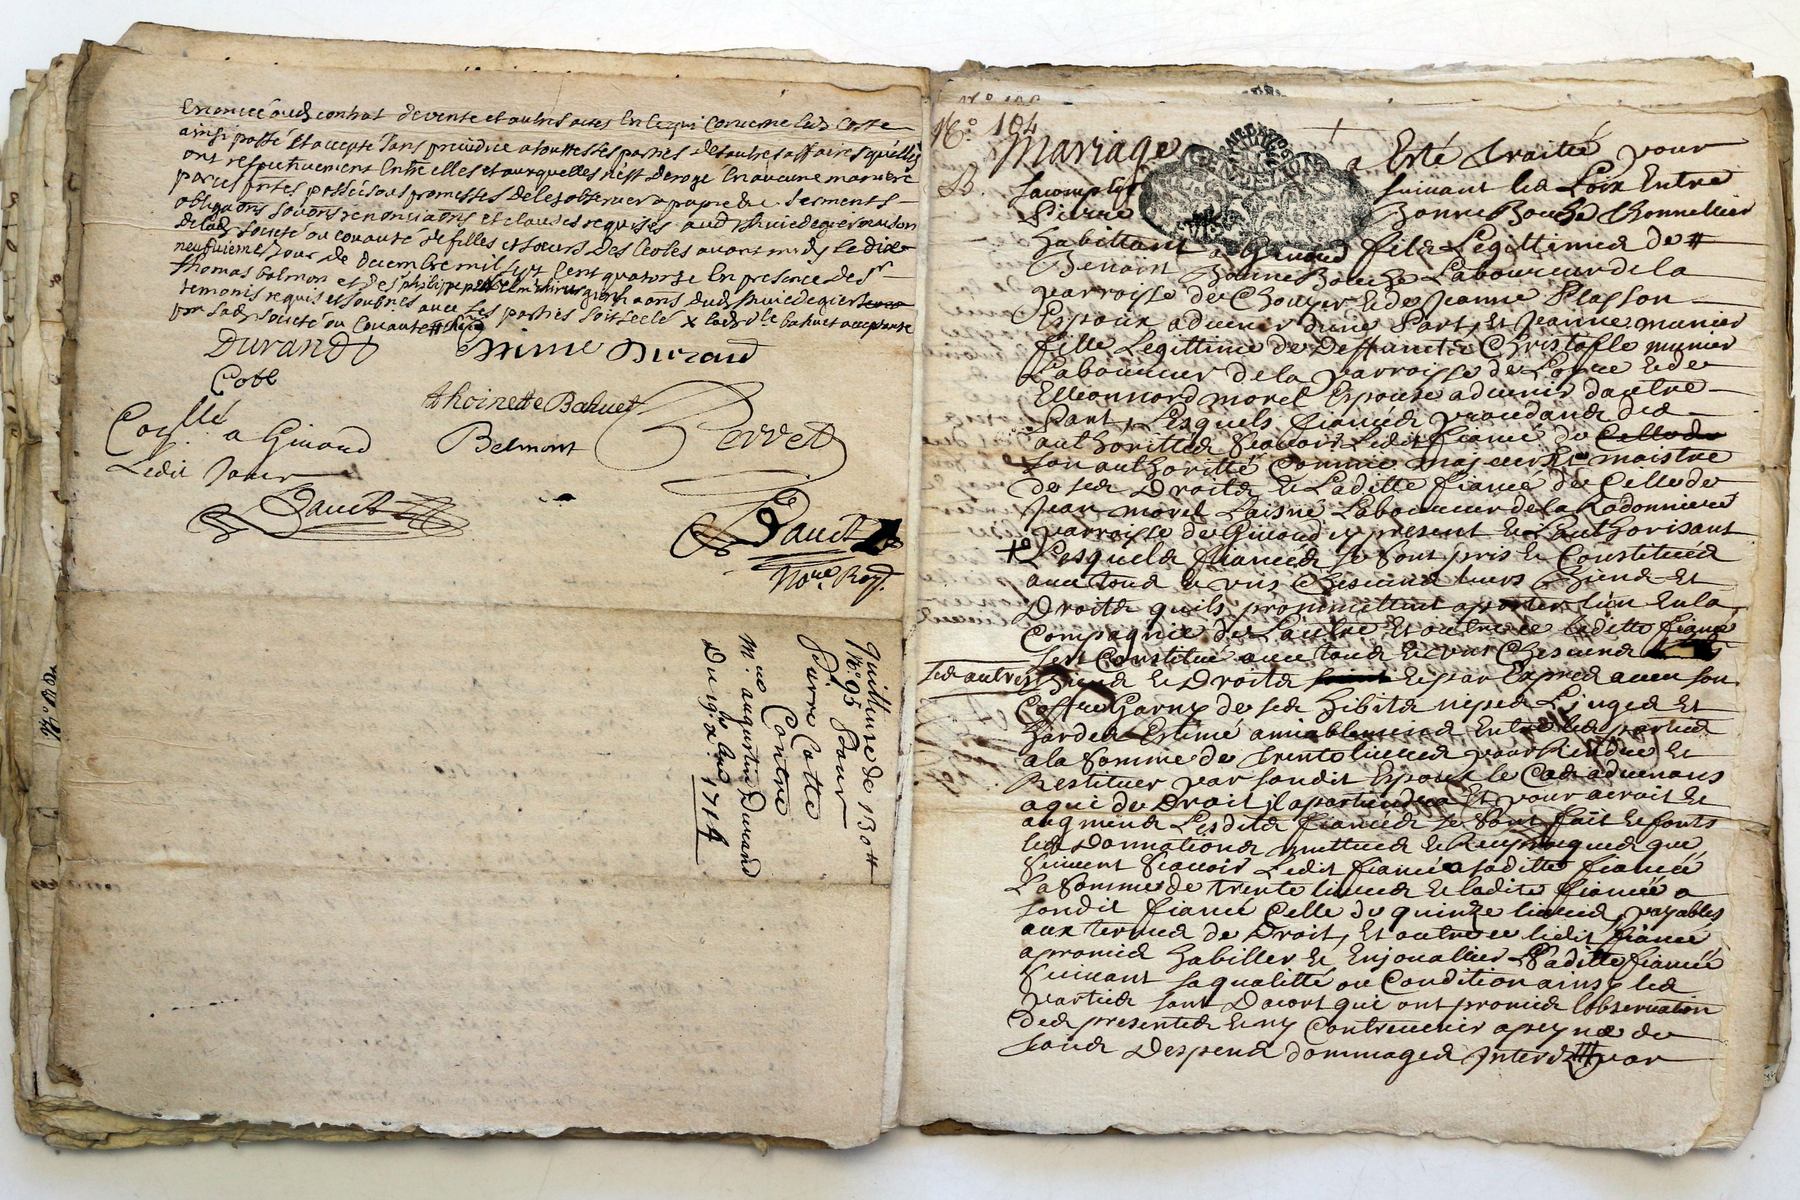 Enoncée aud contrat de vente et autres actes En ce qui Concerne lad Cotte
ainsi passé Et accepté Sans prejudice a touttes les parties des autres affaires quelles
ont respectivement Entre elles et auxquelles n'est deroge En aucune maniere
par ces pntes passé sous promesses de les observer a peyne de serments
obligaons soumons renonciaons et clauses requises aud
de lad Societé ou comauté de filles et Sœurs des Ecoles avant midy le dix
neufvieme Jour de decembre mil sept Cent quatorze En presence de Sr
thomas belmon et de Sr philippe
temonis requis et soubnés avec les parties soit scelé x lad dlle bahuet acceptante
pour lad Societé ou Comauté
Durand
Anime Durand
Cotte
thoinette Bahuet
Belmont
Perret
Coellé a Givord
Ledit Jour
Dauit
Dauit
Nore Roy.
quittance de 130 tt
N.º 95 pour
Pierre Cotte
Contre
Me augustin Durand
Du 19.e Xbre 1714
N.º 104
Mariage
a Esté traitté pour
B.
Saccomplir
suivant les Loix Entre
Pierre
Bonne Bouche Bonnellier
habittant a Givord fils Legittimes de
Benoist Bonne Bouche Laboureur de la
parroisse de Chouyer et de Jeanne Plasson
Espoux advenir d'une Part, Et Jeanne munier
fille Legittime de Deffunct Christofle munier
Laboureur de la parroisse de Loyre et de
Ellionnord morel Espouse advenir d'autre
Part, Lesquels fiancés procedants des
authorittes scavoir Ledit fiancé de Celle de
son authoritté Comme majeur et maistre
de ses Droits et Laditte fiancé de Celle de
Jean morel Laisné Laboureur de la Rodonniere
parroisse de Givord cy present et L'authorisant
Lesquels fiancés se sont pris et Constitués
avec tous et uns Chescuns leurs Biens et
Droits quils promettent aporter l'un En la
Compagnie de L'autre Et outre ce laditte fiancé
sest Constitué avec tous et uns Chescuns
ses autres Biens et Droits et par Exprés avec son
Coffre Garny de ses hibits nipes Linges Et
hardes Estimé amiablement Entre les parties
a la somme de trente livres pour Rendre Et
Restituer par sondit Espoux le Cas advenans
a qui de Droit il apartiendra Et pour acroit Et
augment Lesdits fiancés se sont fait et fonts
les Donnations mutuel et Reciproques que
suivent scavoir Ledit fiancé a laditte fiancée
La somme de trente livres et ladite fiancée a
sondit fiancé Celle de quinze livres, payables
aux termes de Droit, Et outre ce ledit fiancé
a promis habiller et Enjouallier Laditte fiancée
suivant sa qualitté ou Condition ainsy les
parties sont Dacort qui ont promis l'observation
des presentes et ny Contrevenir a peyne de
tous Despens dommages Interets par